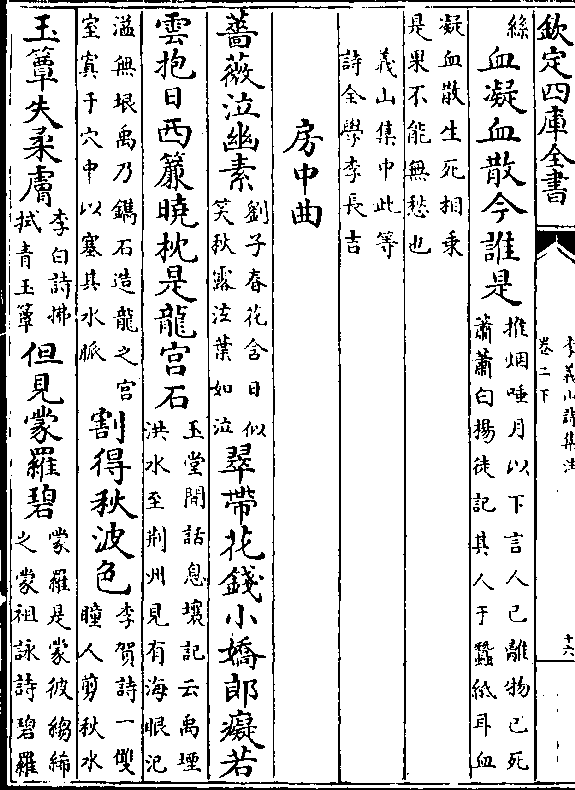 欽定四庫全書
李義山詩集注
卷二下
十六
絲
血凝血散今誰是
推烟唾月以下言人已離物已死
蕭蕭白楊徒記其人于蠶紙耳血
凝血散生死相乘
是果不能無愁也
義山集中此等
詩全學李長吉
房中曲
薔薇泣幽素
劉子春花含日似
笑秋露泣葉如泣
翠帶花錢小嬌郎癡若
雲抱日西簾曉枕是龍宫石
玉堂閒話息壤記云禹堙
洪水至荆州見有海眼氾
溢無垠禹乃鐫石造龍之宫
室窴于穴中以塞其水脈
割得秋波色
李賀詩一雙
瞳人剪秋水
玉簟失柔膚
李白詩拂
拭青玉簟
但見蒙羅碧
蒙羅是蒙彼縐絺
之蒙祖詠詩碧羅